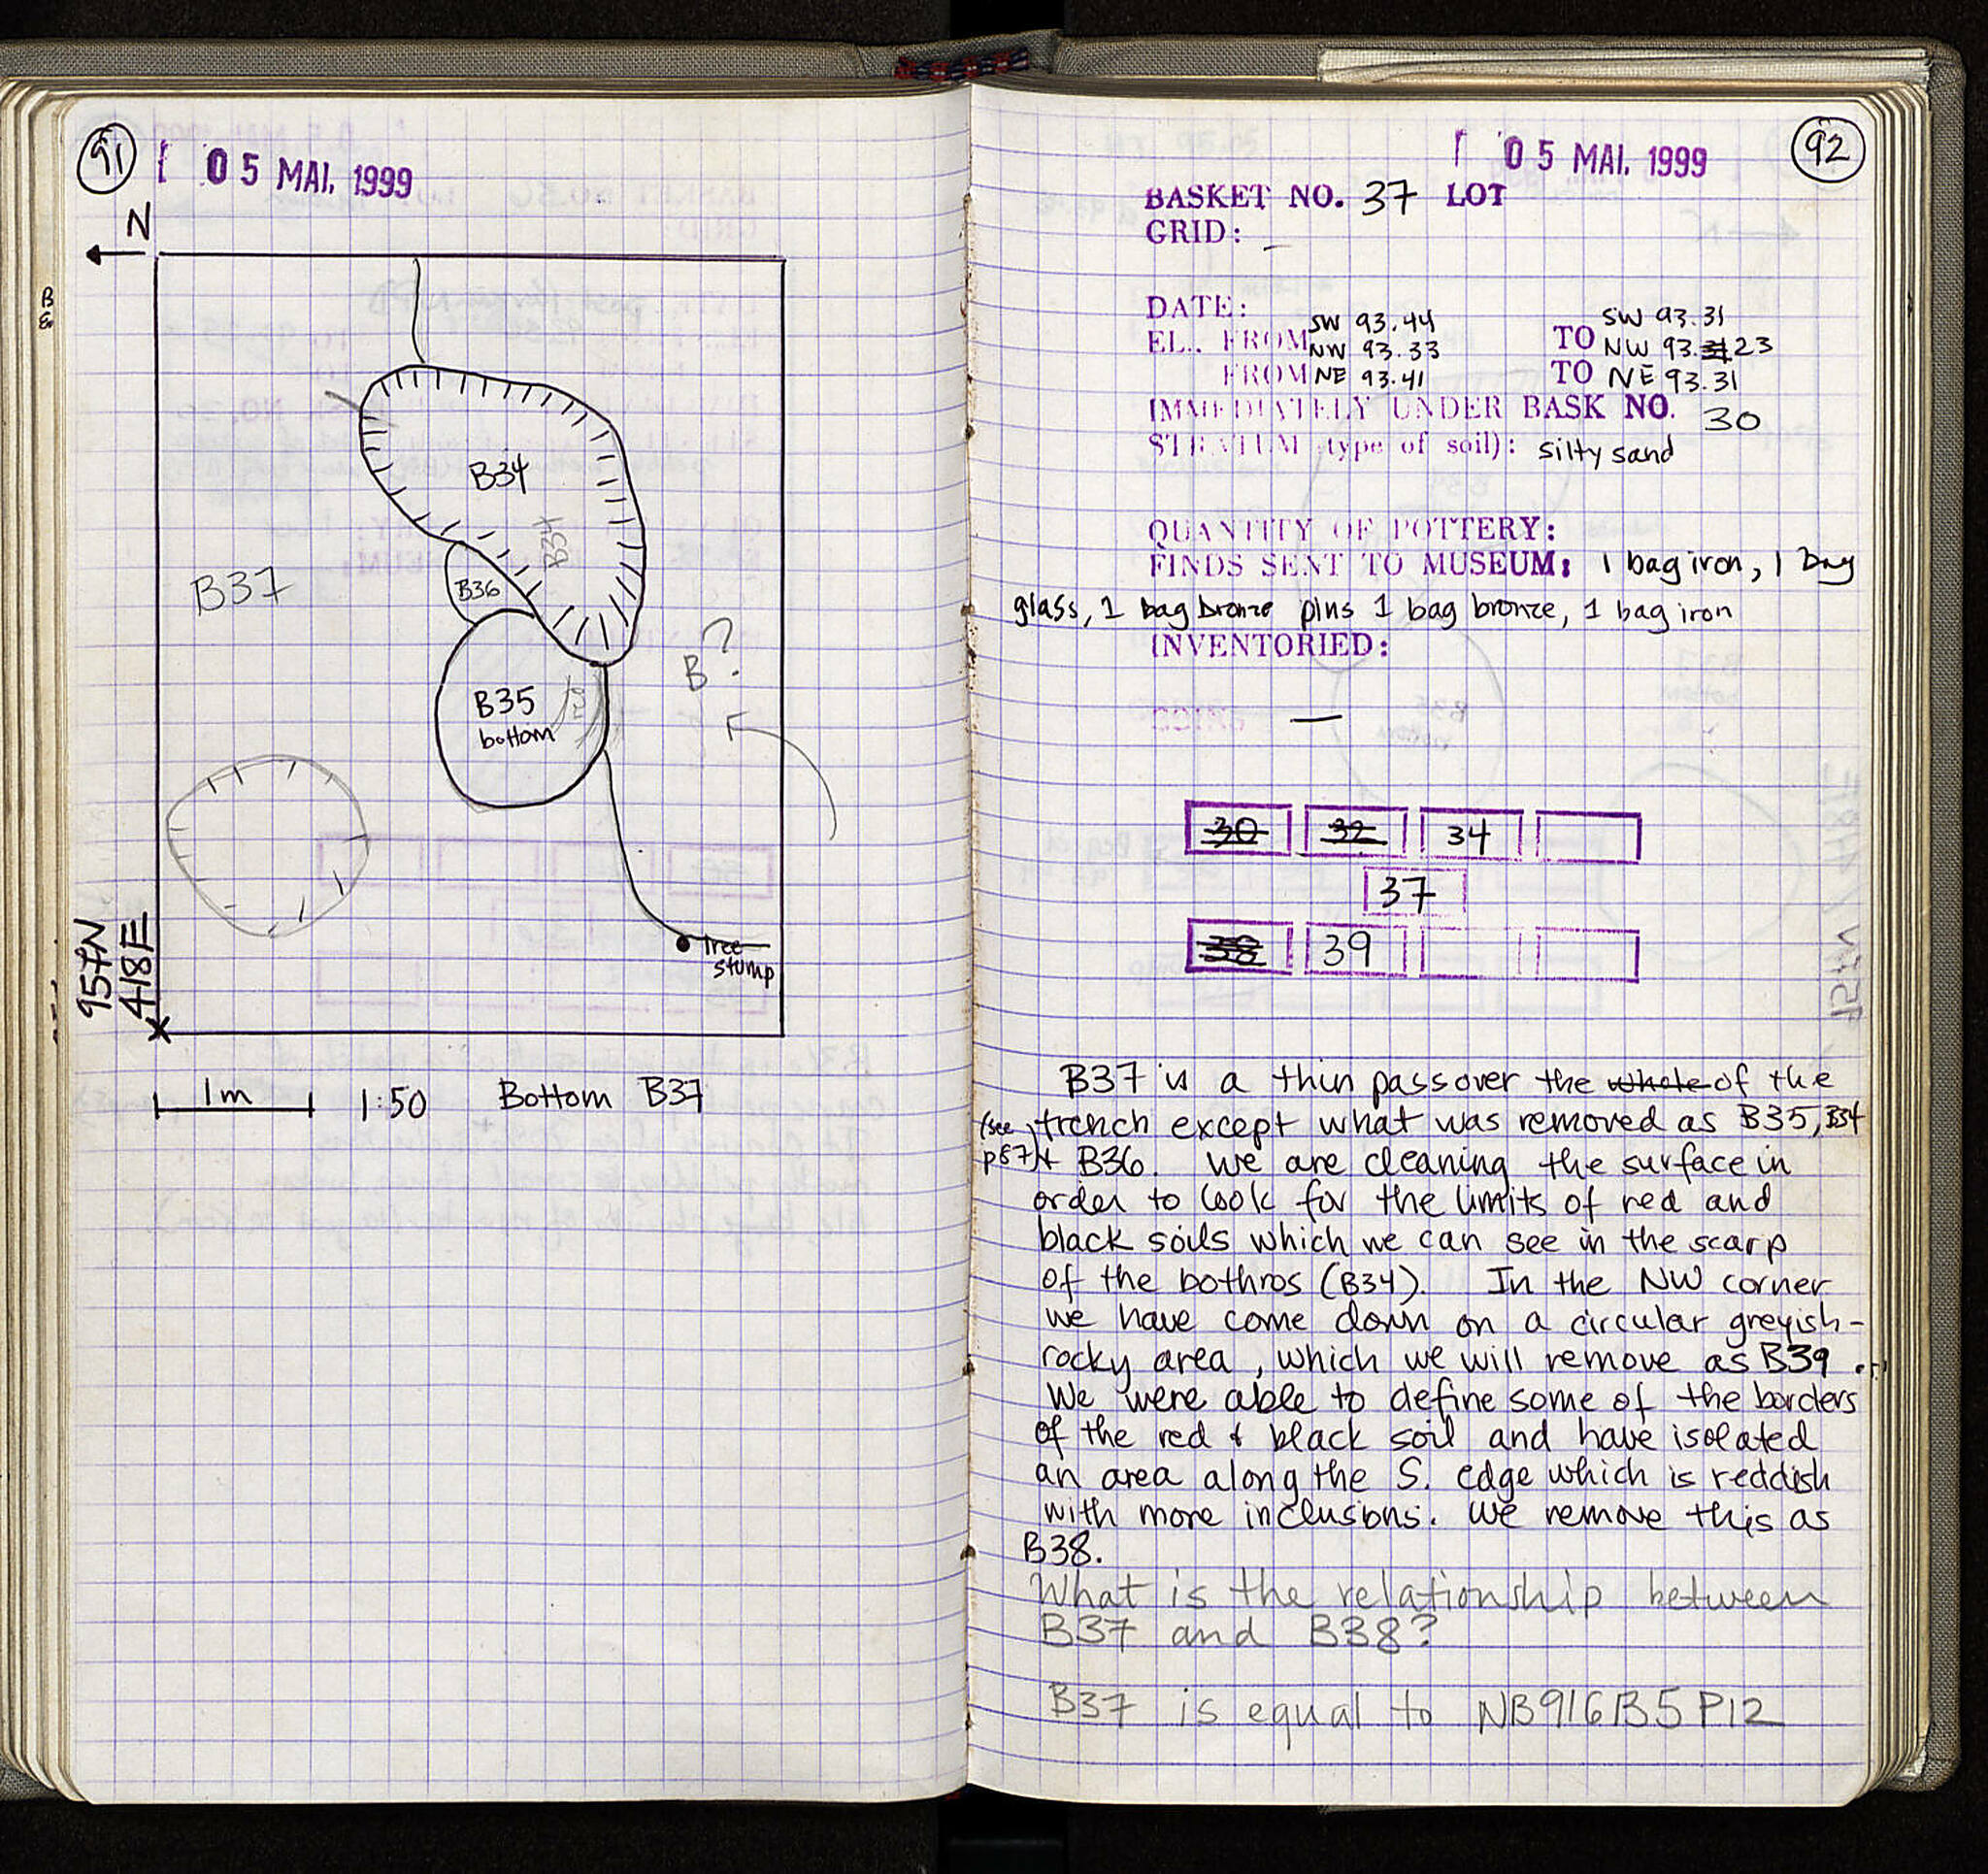 91
05 MAI. 1999
N
B34
B34
B36
B37
B?
B35
bottom
tree
stump
957N
418E
1m 1:50 Bottom B37
05 MAI. 1999
92
BASKET NO. 37 LOT
GRID: –
DATE:
EL. FROM SW 93.44 TO SW 93.31
NW 93.33 NW 93.23
FROM NE 93.41 TO NE 93.31
IMMEDIATELY UNDER BASK NO. 30
STRATUM (type of soil): silty sand
QUANTITY OF POTTERY:
FINDS SENT TO MUSEUM: 1 bag iron, 1 bag
glass, 1 bag bronze pins 1 bag bronze, 1 bag iron
INVENTORIED:
COINS —
30 32 34
37
38 39
B37 is a thin pass over the whole of the
(see trench except what was removed as B35, B34
p87) + B36. We are cleaning the surface in
order to look for the limits of red and
black soils which we can see in the scarp
of the bothros (B34). In the NW corner
we have come down on a circular greyish-
rocky area, which we will remove as B39.
We were able to define some of the borders
of the red & black soil and have isolated
an area along the S. edge which is reddish
with more inclusions. We remove this as
B38.
What is the relationship between
B37 and B38?
B37 is equal to NB916 B5 P12